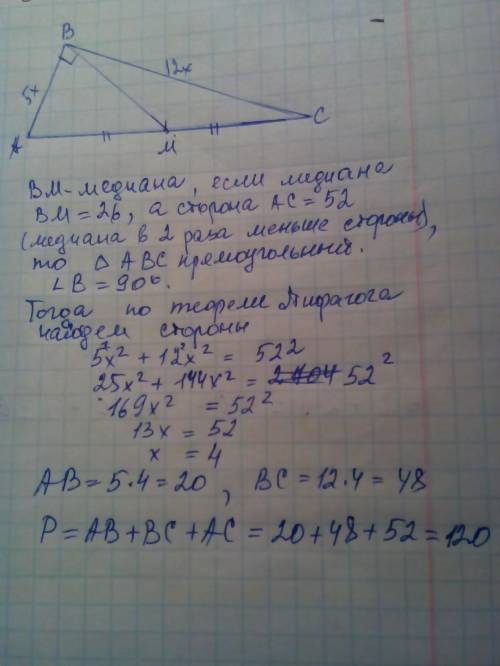 B
5x
12x
A
M
C
BM-медиана, если медиана
BM = 26, а сторона AC = 52
(медиана в 2 раза меньше стороны),
то △ ABC прямоугольный.
∠B = 90°.
Тогда по теореме Пифагога
найдем стороны
5²x² + 12²x² = 52²
25x² + 144x² = 52²
169x² = 52²
13x = 52
x = 4
AB = 5·4 = 20, BC = 12·4 = 48
P = AB + BC + AC = 20 + 48 + 52 = 120